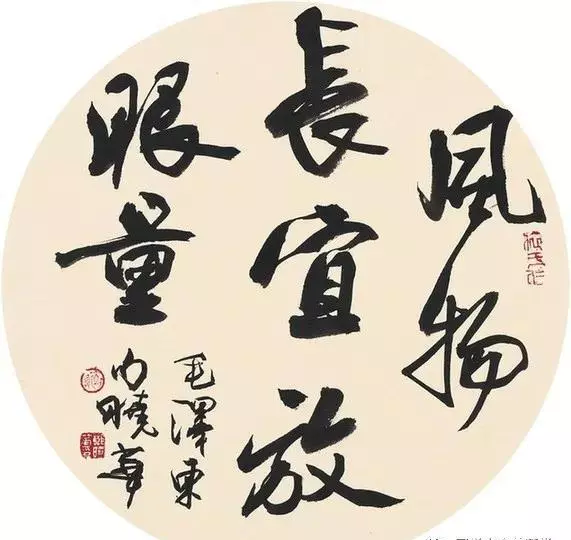 風物
長宜放
眼量
毛澤東
句曉華